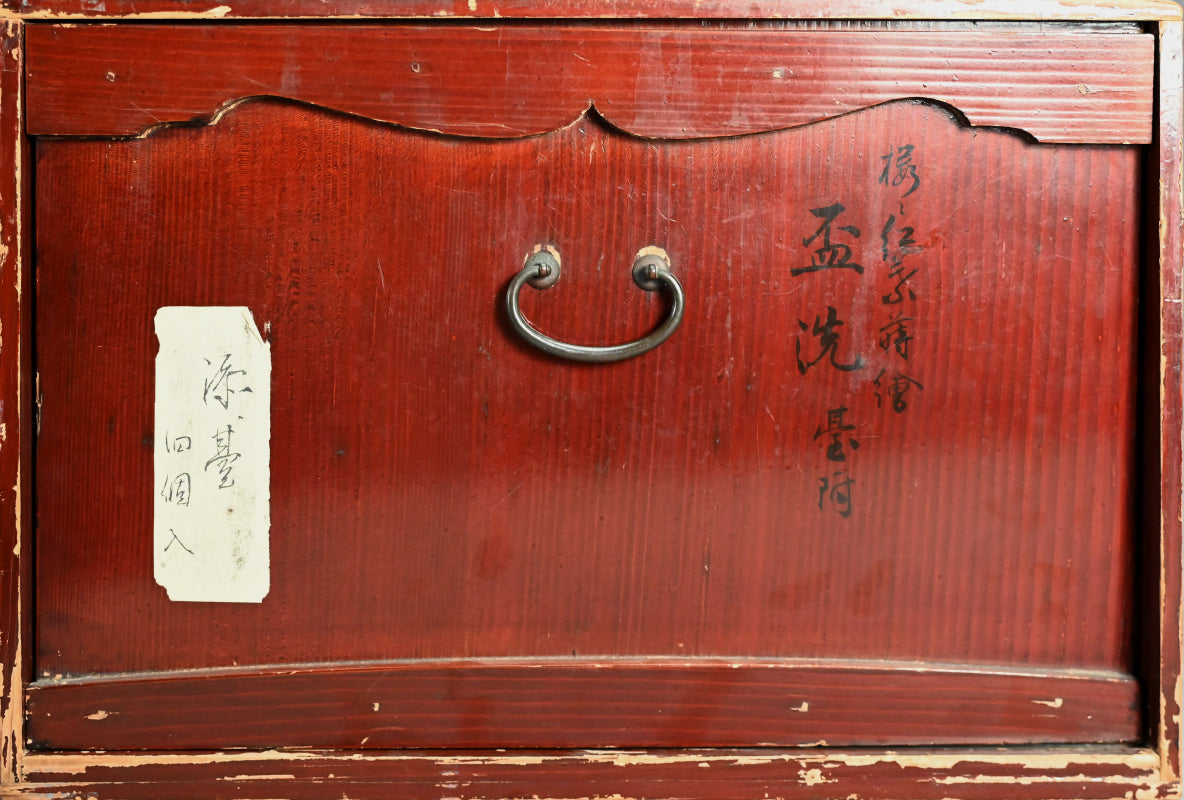 櫻ニ紅葉蒔繪
盃洗臺附
添臺
四個入